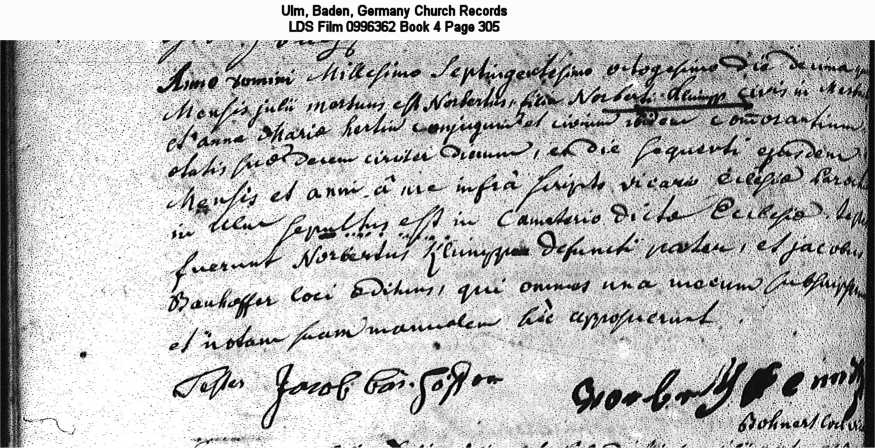 Ulm, Baden, Germany Church Records
LDS Film 0996362 Book 4 Page 305
Anno Domini Millesimo Septingentesimo octogesimo die decima
Mensis julii mortuus est Norbertus, filius Norberti Klumpp civis in
et anna Maria hertin conjugum et civium ibidem commorantium,
etatis suae decem circiter dierum, et die sequenti ejusdem
Mensis et anni a me infra scripto vicario Eclesiae Paroch
in Ulm sepultus est in Cameterio dictae Ecclesiae. testes
fuerunt Norbertus Klumpp defuncti pater, et jacobus
Bauhoffer loci edituus, qui omnes una mecum
et notam suam manualem hic apposuerunt.
Testes Jacob
Bohnert